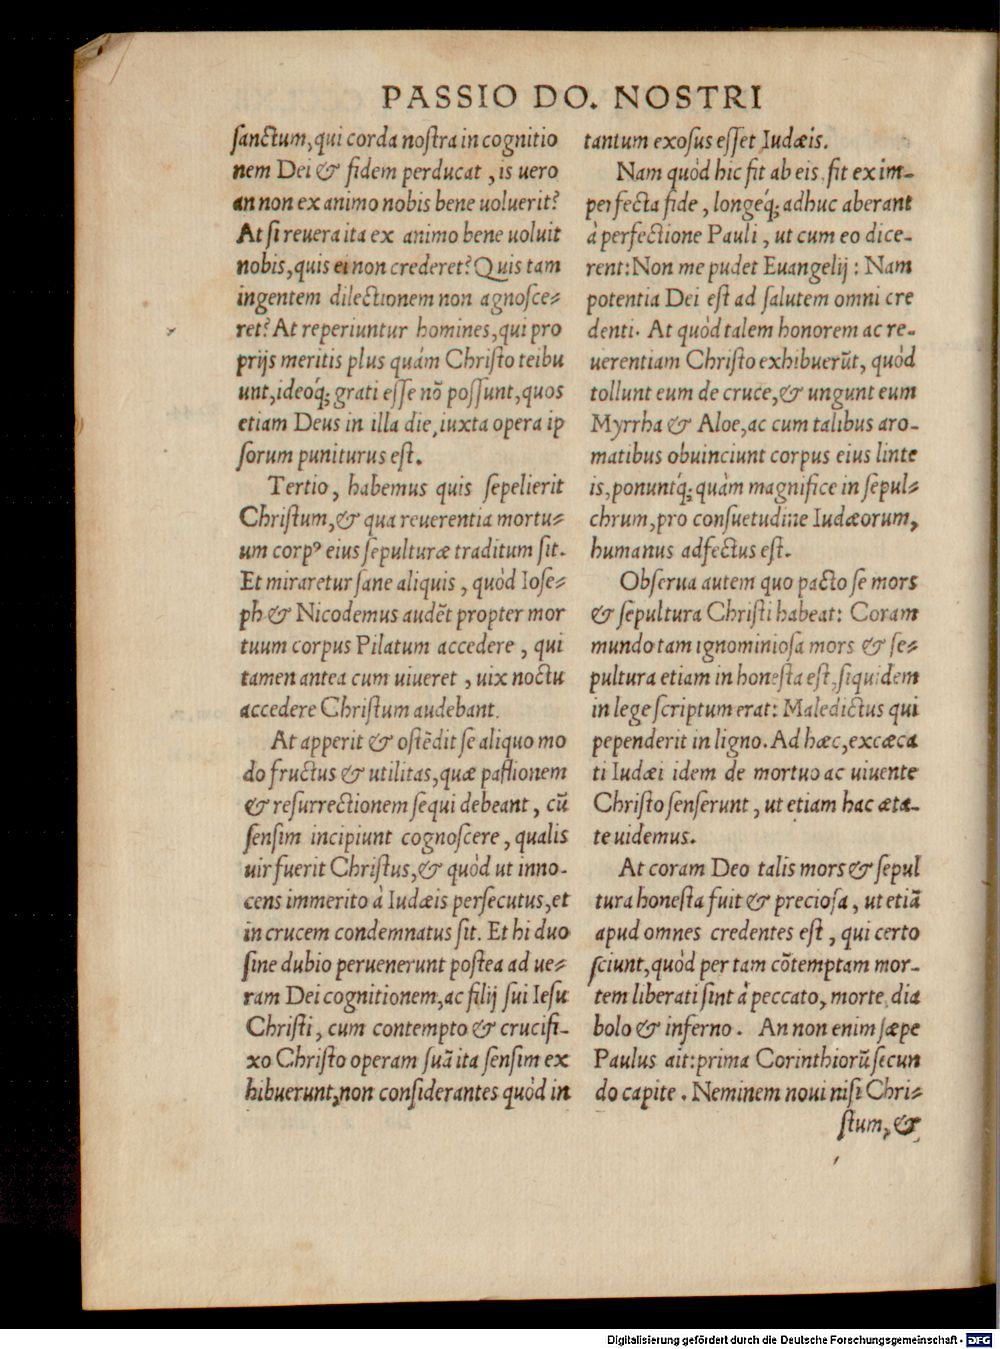 PASSIO DO. NOSTRI
sanctum, qui corda nostra in cognitio
nem Dei & fidem perducat, is uero
an non ex animo nobis bene uoluerit?
At si reuera ita ex animo bene uoluit
nobis, quis ei non crederet? Quis tam
ingentem dilectionem non agnosce⸗
ret? At reperiuntur homines, qui pro
prijs meritis plus quám Christo teibu
unt, ideoq́; grati esse nõ possunt, quos
etiam Deus in illa die, iuxta opera ip
sorum puniturus est.
Tertio, habemus quis sepelierit
Christum, & qua reuerentia mortu⸗
um corpꝰ eius sepulturæ traditum sit.
Et miraretur sane aliquis, quòd Iose⸗
ph & Nicodemus audẽt propter mor
tuum corpus Pilatum accedere, qui
tamen antea cum uiueret, uix noctu
accedere Christum audebant.
At apperit & ostẽdit se aliquo mo
do fructus & utilitas, quæ passionem
& resurrectionem sequi debeant, cũ
sensim incipiunt cognoscere, qualis
uir fuerit Christus, & quòd ut inno-
cens immerito à Iudæis persecutus, et
in crucem condemnatus sit. Et hi duo
sine dubio peruenerunt postea ad ue⸗
ram Dei cognitionem, ac filij sui Iesu
Christi, cum contempto & crucifi-
xo Christo operam suã ita sensim ex
hibuerunt, non considerantes quòd in
tantum exosus esset Iudæis.
Nam quòd hic fit ab eis, fit ex im-
perfecta fide, longeq́; adhuc aberant
à perfectione Pauli, ut cum eo dice-
rent: Non me pudet Euangelij: Nam
potentia Dei est ad salutem omni cre
denti. At quòd talem honorem ac re-
uerentiam Christo exhibuerũt, quòd
tollunt eum de cruce, & ungunt eum
Myrrha & Aloe, ac cum talibus aro-
matibus obuinciunt corpus eius linte
is, ponuntq́; quàm magnifice in sepul⸗
chrum, pro consuetudine Iudæorum,
humanus adfectus est.
Obserua autem quo pacto se mors
& sepultura Christi habeat: Coram
mundo tam ignominiosa mors & se⸗
pultura etiam in honesta est, siquidem
in lege scriptum erat: Maledictus qui
pependerit in ligno. Ad hæc, excæca
ti Iudæi idem de mortuo ac uiuente
Christo senserunt, ut etiam hac æta-
te uidemus.
At coram Deo talis mors & sepul
tura honesta fuit & preciosa, ut etiã
apud omnes credentes est, qui certo
sciunt, quòd per tam cõtemptam mor-
tem liberati sint à peccato, morte, dia
bolo & inferno. An non enim sæpe
Paulus ait: prima Corinthiorũ secun
do capite. Neminem noui nisi Chri⸗
stum, &
Digitalisierung gefördert durch die Deutsche Forschungsgemeinschaft - DFG